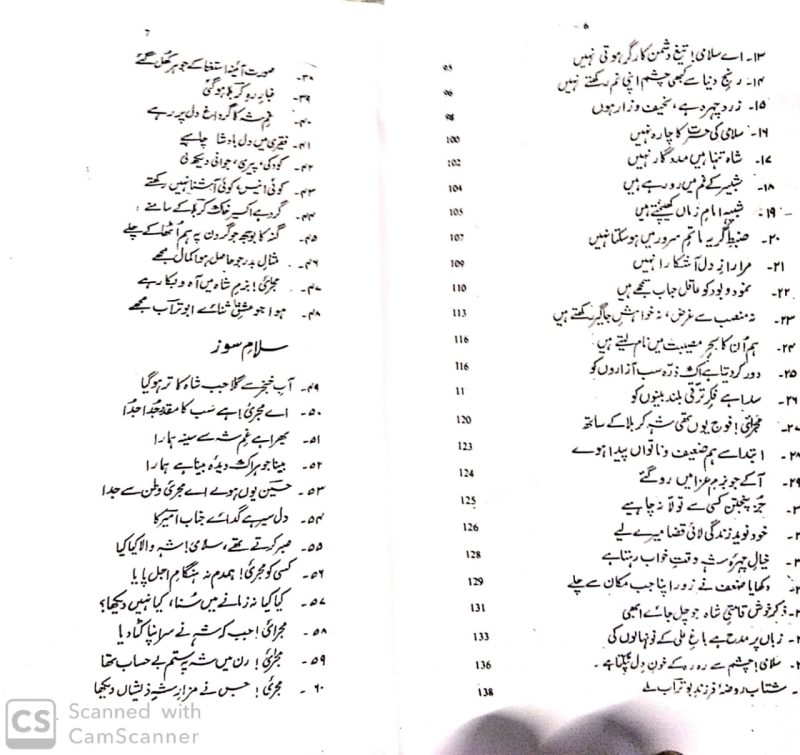 ۶
۱۳۔ اے سلامی! تیغِ دشمن کارگر ہوتی نہیں 95
۱۴۔ رنجِ دنیا سے کبھی چشم اپنی نم رکھتے نہیں 96
۱۵۔ زرد چہرہ ہے، نحیف و زار ہوں 98
۱۶۔ سلامی کی حسرت کا چارہ نہیں 100
۱۷۔ شاہ تنہا ہیں مددگار نہیں 102
۱۸۔ شبیر کے غم میں رو رہے ہیں 104
۱۹۔ شبیہِ امامِ زماں کھینچتے ہیں 105
۲۰۔ ضبطِ گریہ ماتمِ سرور میں ہو سکتا نہیں 107
۲۱۔ مرا رازِ دل آشکارا نہیں 109
۲۲۔ نمود و بود کو عاقل حباب سمجھے ہیں 110
۲۳۔ نہ منصب سے غرض، نہ خواہشِ جاگیر رکھتے ہیں 113
۲۴۔ ہم اُن کا بحرِ مصیبت میں نام لیتے ہیں 116
۲۵۔ دور کر دیتا ہے اک ذرّہ سب آزاروں کو 116
۲۶۔ سدا ہے فکرِ ترقی بلند بینوں کو 11
۲۷۔ مجرائی! فوج یوں تھی شہِ کربلا کے ساتھ 120
۲۸۔ ابتدا سے ہم ضعیف و ناتواں پیدا ہوے 123
۲۹۔ آکے جو بزمِ عزا میں رو گئے 124
۳۔ جز پنجتن کسی سے تولّا نہ چاہیے 125
۳۔ خود نویدِ زندگی لائی قضا میرے لیے 126
۳۔ خیالِ چہرۂ شہ وقتِ خواب رہتا ہے 128
۳۔ دکھایا ضعف نے زور اپنا جب مکان سے چلے 129
۳۔ ذکر خوش قامتیِ شاہ جو چل جائے ابھی 131
۳۔ زباں پر مدح ہے باغِ علی کے نونہالوں کی 133
۳۔ سلامی! چشم سے رو رہ کے خونِ دل ٹپکتا ہے۔ 136
شتاب روضۂ فرزندِ بوتراب ملے 138
۷
۳۸۔ صورتِ آئینہ استغنا کے جوہر کھل گئے
۳۹۔ غبارِ رہِ کربلا ہوگئی
۴۰۔ غمِ شہ کا گر داغ دل پر رہے
۴۱۔ فقیری میں دل بادشا چاہیے
۴۲۔ کودکی، پیری، جوانی دیکھ لی
۴۳۔ کوئی انیس، کوئی آشنا نہیں رکھتے
۴۴۔ گرد ہے اکسیر خاکِ کربلا کے سامنے
۴۵۔ گنہ کا بوجھ جو گردن پہ ہم اُٹھا کے چلے
۴۶۔ مثالِ بدر جو حاصل ہوا کمال مجھے
۴۷۔ مجرئی! بزمِ شاہ میں آہ و بکا رہے
۴۸۔ ہوا جو مشقِ ثنائے ابو تراب مجھے
سلامِ سوز
۴۹۔ آبِ خنجر سے گلا جب شاہ کا تر ہو گیا
۵۰۔ اے مجرئی! ہے سب کا مقدر جدا جدا
۵۱۔ بھرا ہے غمِ شہ سے سینہ ہمارا
۵۲۔ بینا جو ہر اک دیدۂ بینا ہے ہمارا
۵۳۔ حسین یوں ہوے اے مجرئی وطن سے جدا
۵۴۔ دل سے ہے گدائے جنابِ امیر کا
۵۵۔ صبر کرتے تھے، سلامی! شہِ والا کیا کیا
۵۶۔ کسی کو مجرئی! ہمدم نہ ہنگامِ اجل پایا
۵۷۔ کیا کیا نہ زمانے میں سُنا، کیا نہیں دیکھا؟
۵۸۔ مجرائی! جب کہ شہ نے سر اپنا کٹا دیا
۵۹۔ مجرئی! رن میں شہ پہ ستم بے حساب تھا
۶۰۔ مجرئی! جس نے مزارِ شہِ ذیشاں دیکھا
CS Scanned with CamScanner